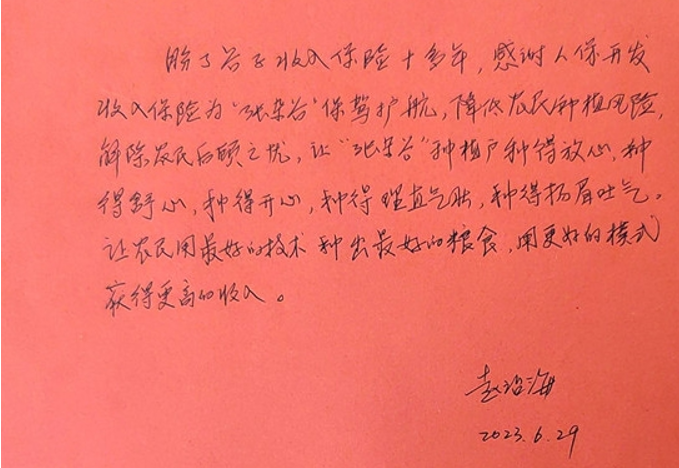 盼了谷子收入保险十多年，感谢人保开发
收入保险为“张杂谷”保驾护航，降低农民种植风险，
解除农民后顾之忧，让“张杂谷”种植户种得放心，种
得舒心，种得开心，种得理直气壮，种得扬眉吐气。
让农民用最好的技术种出最好的粮食，用更好的模式
获得更高的收入。
赵治海
2023.6.29